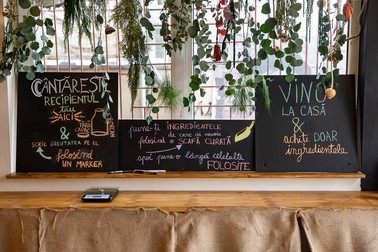 CÂNTĂREȘTE
RECIPIENTUL
tău
AICI
&
SCRIE GREUTATEA PE EL
folosind
UN MARKER
pune-ți INGREDIENTELE
de care ai nevoie
folosind o SCAFĂ CURATĂ
apoi pune-o lângă celelalte
FOLOSITE
VINO
LA CASĂ
&
achiți DOAR
ingredientele